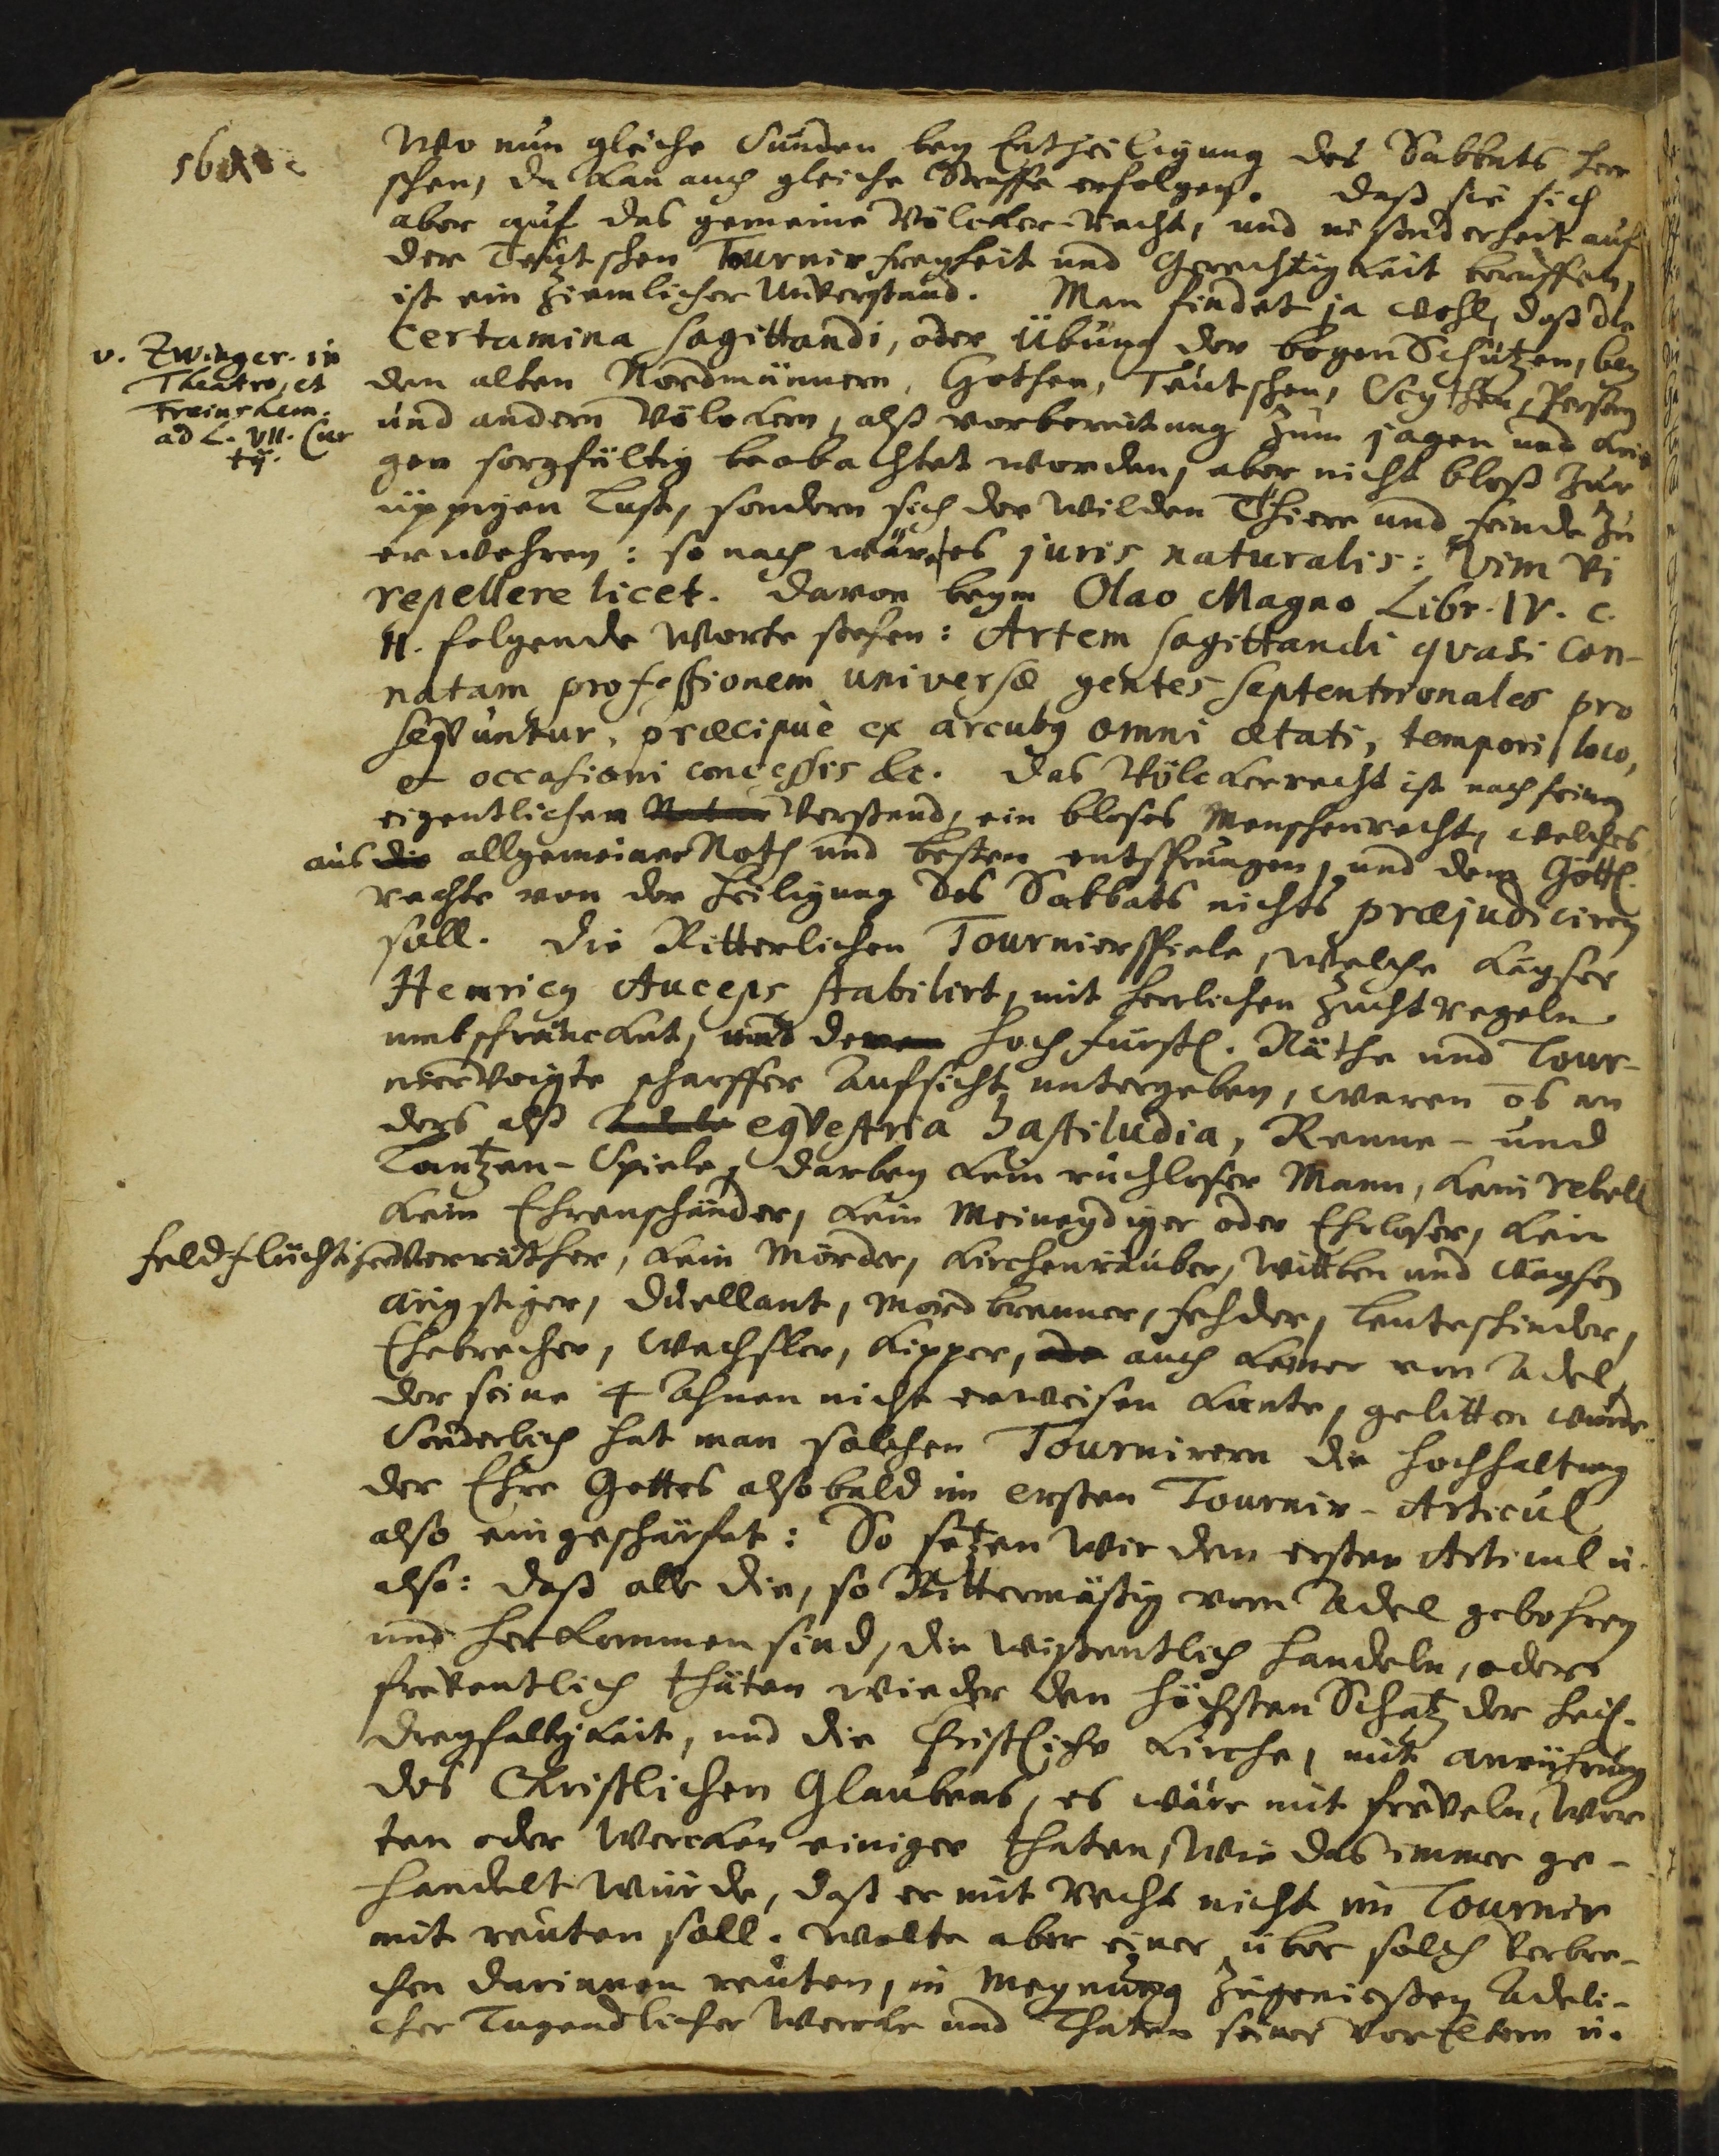 Wo nun gleiche Sünden bey Entheiligung des Sabbats herr
schen, da kan auch gleiche Straffe erfolgen. Daß sie sich
aber auf das gemeine Völcker-Recht, und in sonderheit auf
der Teutschen Turnir freyheit und Gerechtigkeit beruffen,
ist ein ziemlicher Unverstand. Man findet ja wohl, daß die
Certamina sagittandi, oder Übung der bogen Schützen, bey
v. Zwinger. in
Theatro, et
Freinshem.
ad L. VII. Cur
tÿ.
den alten Nordmännern, Gothen, Teutschen, Scythen, Persern
und andern Völckern, alß vorbereitung zum jagen und krie
gen sorgfältig beobachtet worden, aber nicht bloß zur
üppigen Lust, sondern sich der wilden Thiere und feinde zu
erwehren: so nach wäre es juris naturalis: Vim vi
repellere licet. Davon beym Olao Magno Libr. IV. c.
11. folgende Worte stehen: Artem sagittandi quasi con-
natam professionem universæ gentes septentrionales pro
seqvuntur, præcipuè ex arcubus omni ætati, tempori, loco,
et occasioni concessis &c. Das Völckerrecht ist nach seinem
eigentlichem Verstand, ein bloses Menschenrecht, welches
aus die allgemeiner Noth und besten entsprungen, und dem Göttl.
rechte von der heiligung des Sabbats nichts præjudiciren
soll. Die Ritterlichen Tournierspiele, welche Kayser
Henricus Auceps stabilirt, mit herrlichen Zuchtregeln
umbschräncket, und deren hochfürstl. Räthe und Tour-
niervoigte scharffer Aufsicht untergeben, waren nichts an
ders alß eqvestria hastiludia, Renne- und
Lantzen-Spiele, darbey kein ruchloser Mann, kein rebell
kein Ehrenschänder, kein Meineydiger oder Ehrloser, kein
feldflüchtiger Verräther, kein Mörder, Kirchenräuber, Witben und Waysen
ängstiger, Duellant, Mordbrenner, fehder, Leuteschinder,
Ehebrecher, Wechsler, Kipper, auch keiner von Adel,
der seine 4 Ahnen nicht erweisen kunte, gelitten wurde.
Sonderlich hat man solchen Tournirern die hochhaltung
der Ehre Gottes alsobald im ersten Tournir-Articul
also eingeschärfet: So setzen wir den ersten Articul u.
also: daß alle die, so Rittermäßig vom Adel gebohren
und herkommen sind, die wißentlich handeln, oder
freventlich thäten wieder den höchsten Schatz der heil.
Dreyfaltigkeit, und die christliche Kirche, mit anrührung
des Christlichen Glaubens, es wäre mit freveln, Wor
ten oder Wercken einiger thaten, wie das immer ge-
handelt würde, daß er mit Recht nicht im Tournir
mit reuten soll. Wolte aber einer über solch Verbre-
chen darinnen reuten, in Meynung zugenießen Adeli-
cher Tugendlicher Wercke und Thaten seiner VorEltern u.